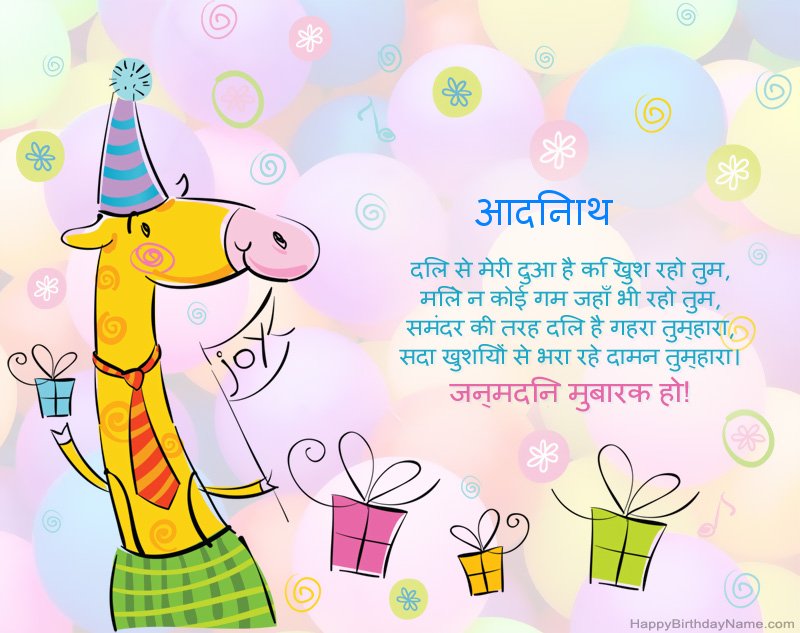 आदनिाथ
दलि से मेरी दुआ है कि खुश रहो तुम,
मलिे न कोई गम जहाँ भी रहो तुम,
समंदर की तरह दलि है गहरा तुम्हारा,
सदा खुशयिों से भरा रहे दामन तुम्हारा।
जन्मदनि मुबारक हो!
joy
HappyBirthdayName.com